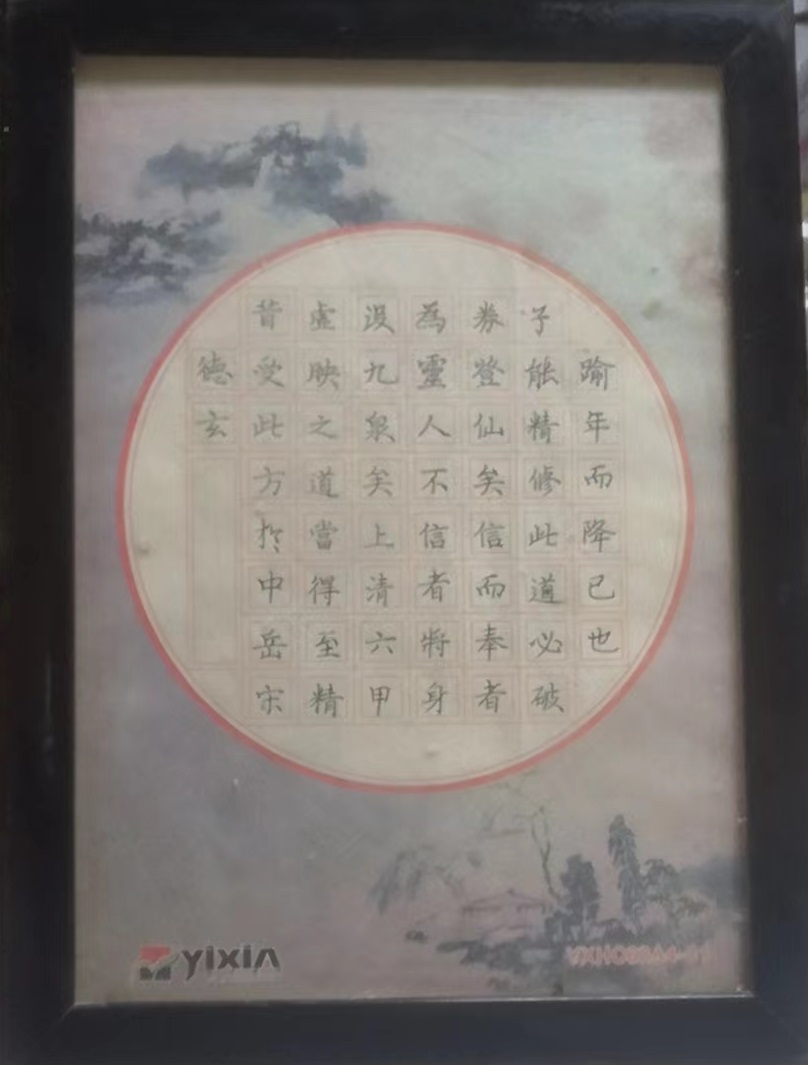 踰年而降已也
子能精修此道必破
券登仙矣信而奉者
為靈人不信者將身
没九泉矣上清六甲
虚映之道當得至精
昔受此方於中岳宋
德玄
yixin